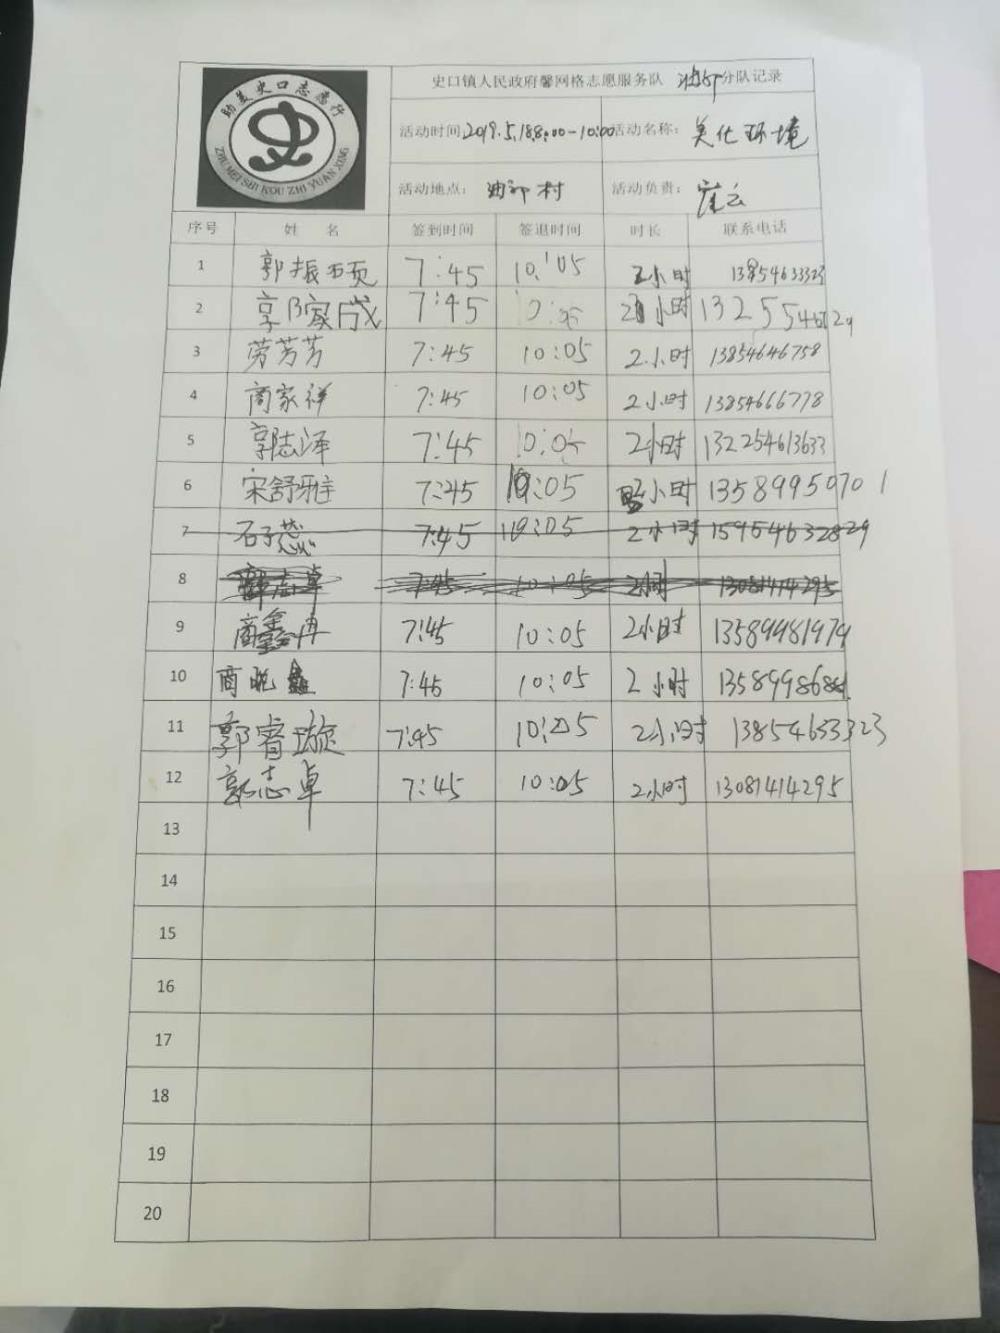 助美史口志愿行
ZHU MEI SHI KOU ZHI YUAN XING
史口镇人民政府馨网格志愿服务队 分队记录
活动时间 2019.5.18 8:00-10:00 活动名称: 美化环境
活动地点: 油郭村 活动负责: 崔云
序号 姓 名 签到时间 签退时间 时长 联系电话
1 郭振 7:45 10:05 2小时 13854633323
2 郭家 7:45 10:05 2小时
3 劳芳芳 7:45 10:05 2小时 13854646758
4 商家祥 7:45 10:05 2小时 13854666778
5 郭志泽 7:45 10:05 2小时 13225461 3633
6 宋舒雅 7:45 10:05 小时 13589950701
7 石子蕊 7:45 10:05 2小时 15954632829
8 郭志卓 7:45 10:05 2小时 13081414295
9 商鑫冉 7:45 10:05 2小时 13589981979
10 商晓鑫 7:45 10:05 2小时
11 郭睿璇 7:45 10:05 2小时 13854633323
12 郭志卓 7:45 10:05 2小时 13081414295
13
14
15
16
17
18
19
20